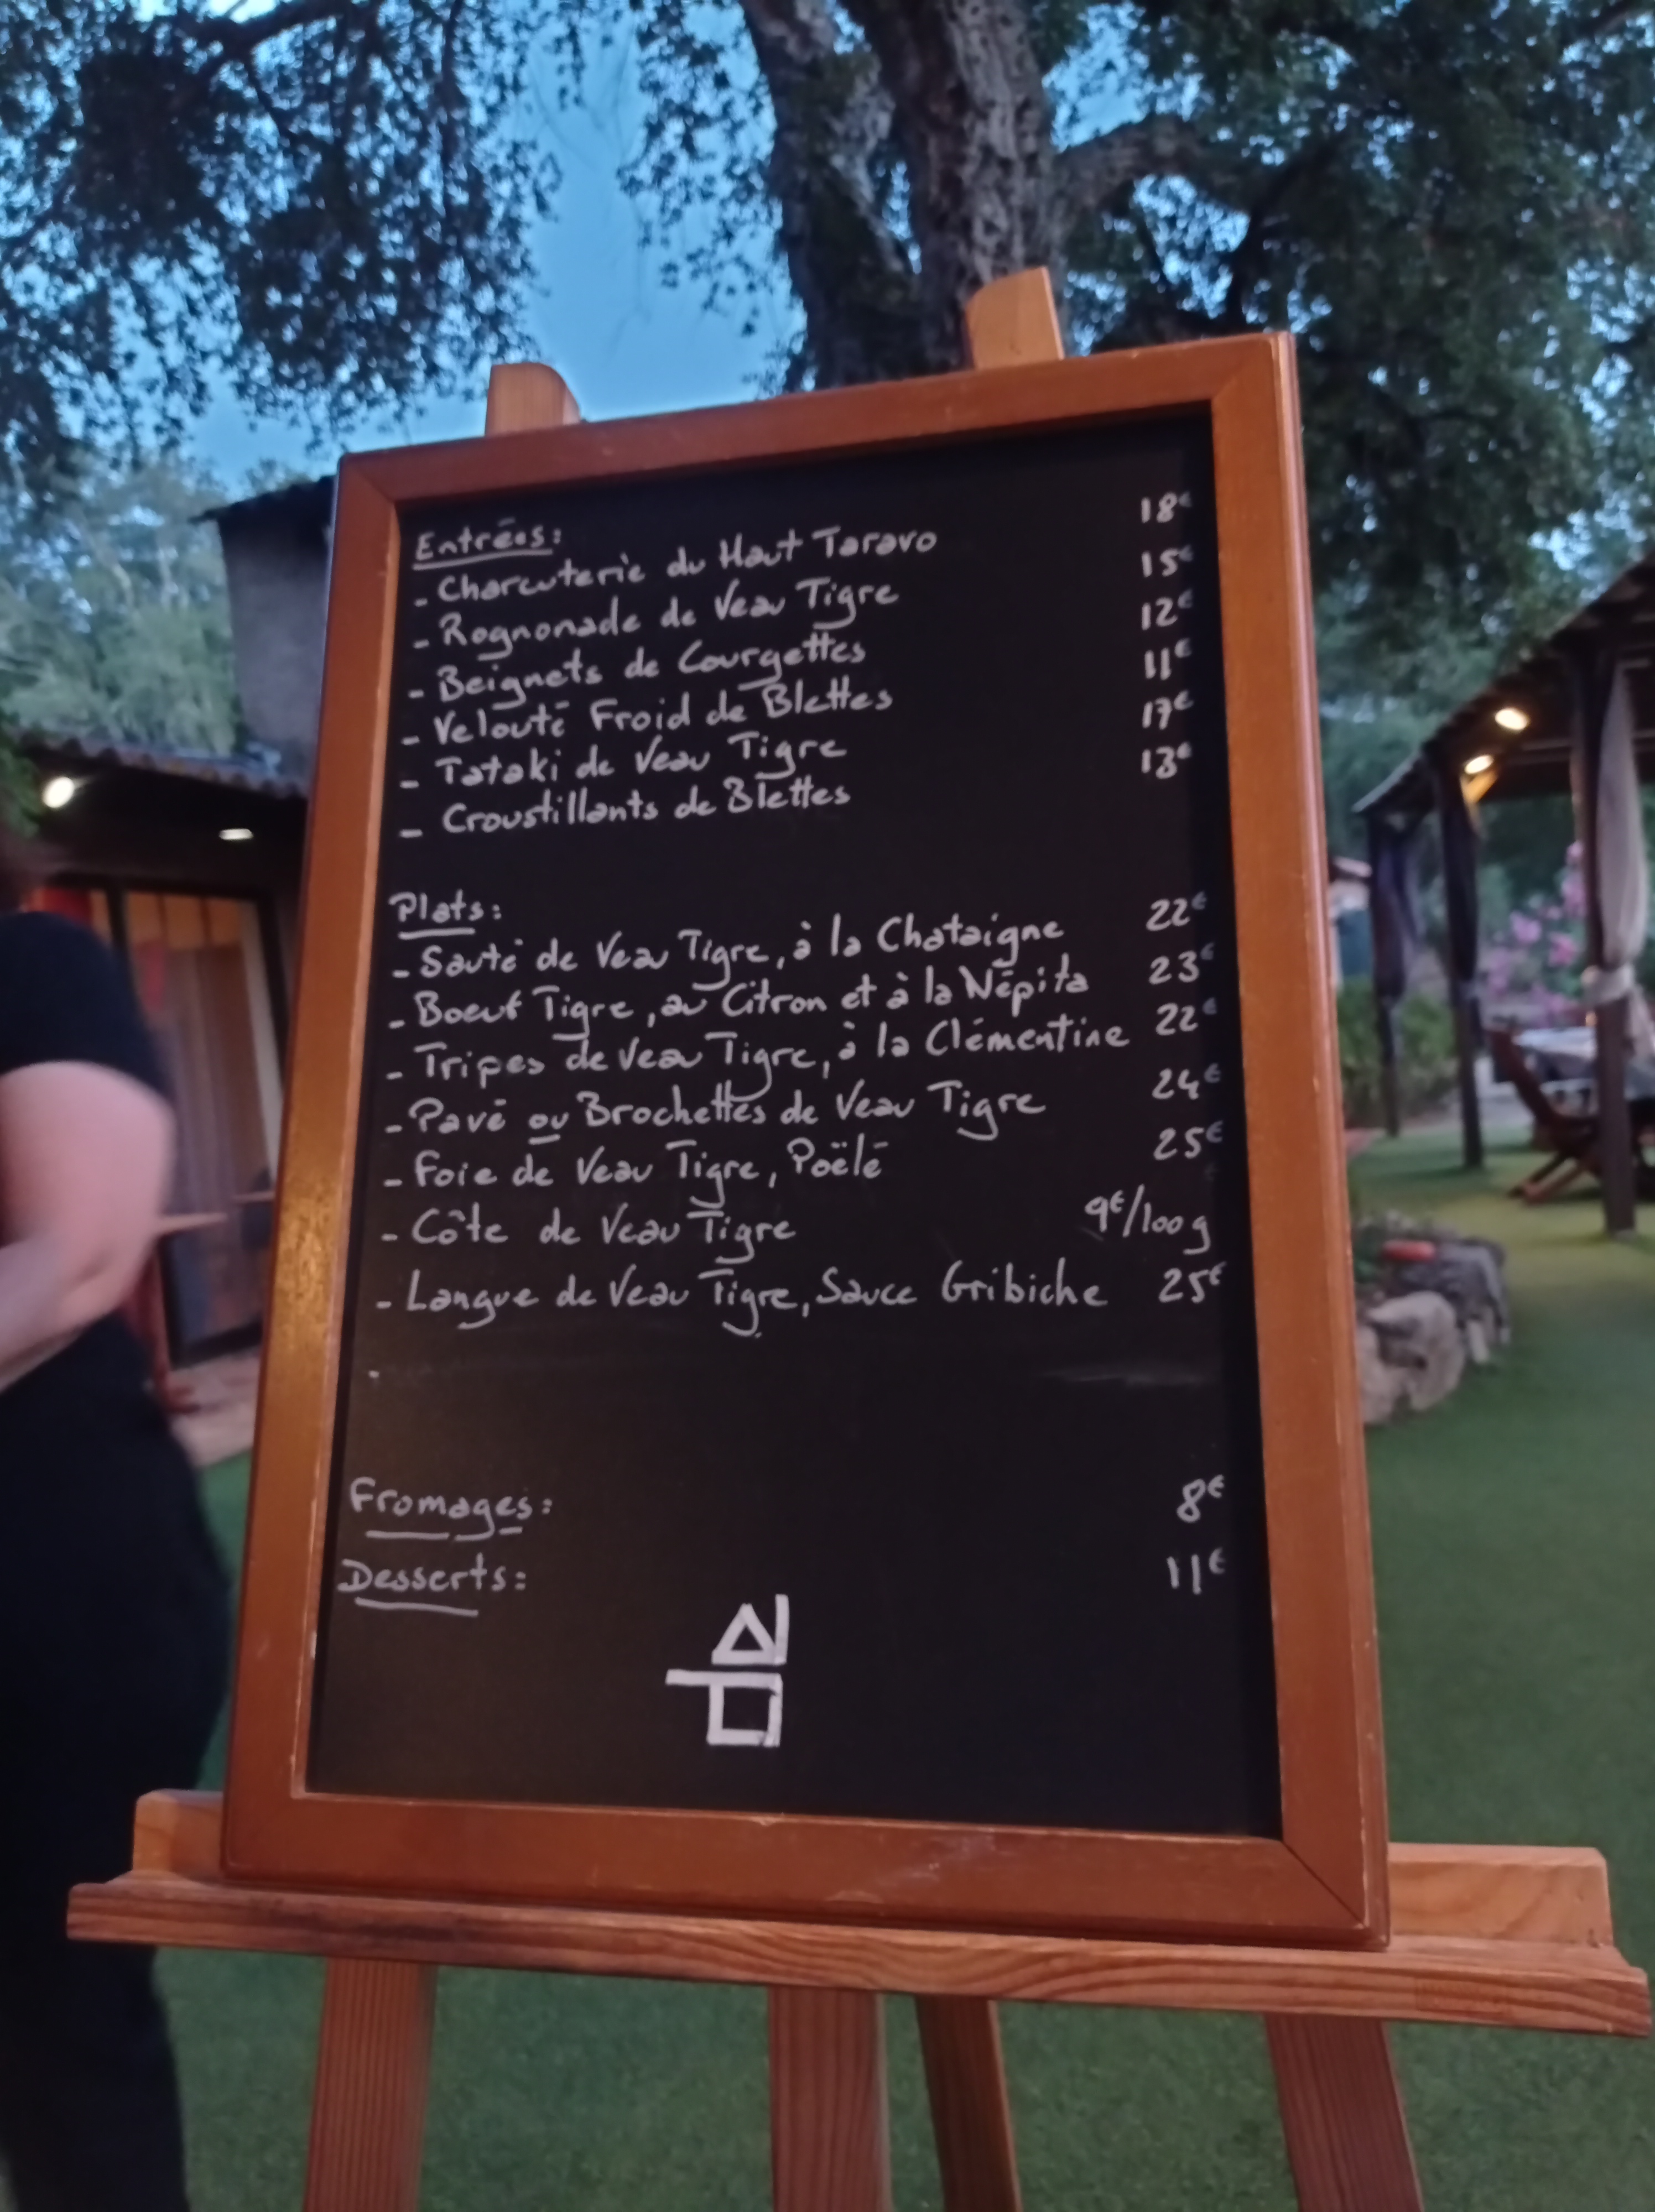 Entrées: 18€
- Charcuterie du Haut Taravo 15€
- Rognonade de Veau Tigre 12€
- Beignets de Courgettes 11€
- Velouté Froid de Blettes 17€
- Tataki de Veau Tigre 13€
- Croustillants de Blettes
Plats:
- Sauté de Veau Tigre, à la Chataigne 22€
- Boeuf Tigre, au Citron et à la Népita 23€
- Tripes de Veau Tigre, à la Clémentine 22€
- Pavé ou Brochettes de Veau Tigre 24€
- Foie de Veau Tigre, Poëlé 25€
- Côte de Veau Tigre 9€/100g
- Langue de Veau Tigre, Sauce Gribiche 25€
Fromages: 8€
Desserts: 11€